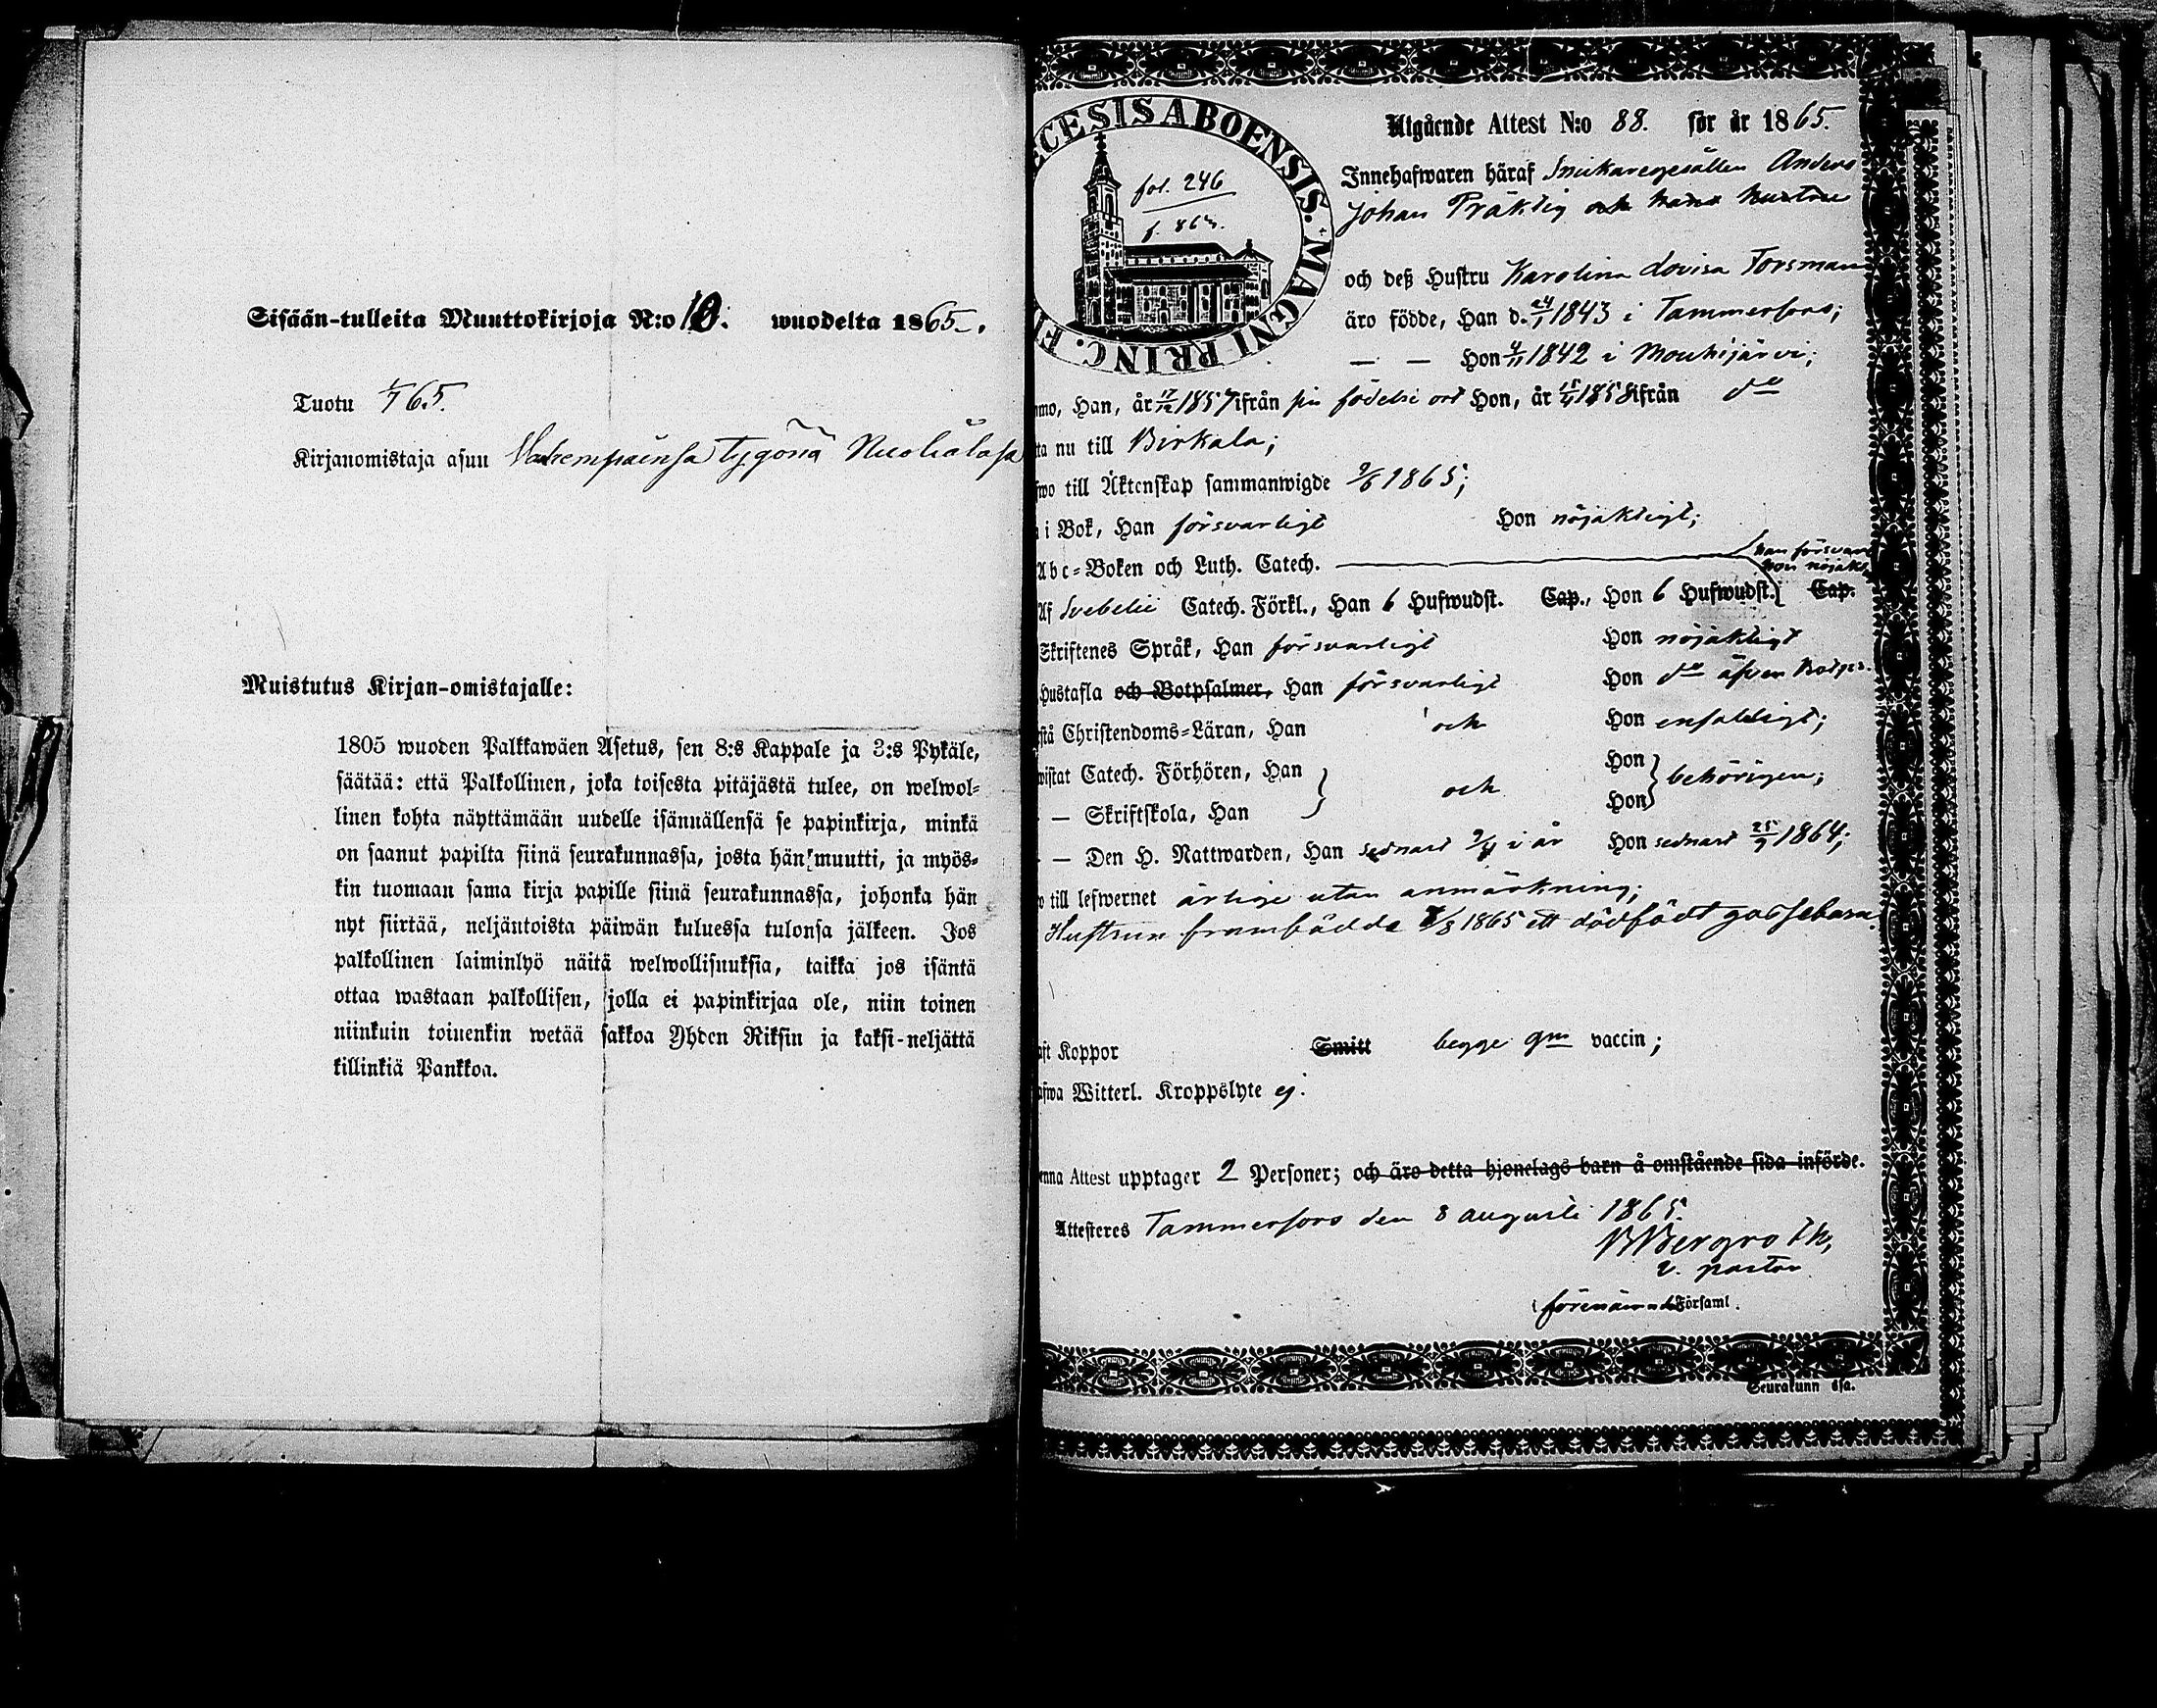 Sisään-tulleita Muuttokirjoja N:o 10. wuodelta 1865.
Tuotu 1/7 65.
Kirjanomistaja asuu Wanhempainsa tygönä Nuoliälasa
Muistutus Kirjan-omistajalle:
1805 wuoden Palkkawäen Asetus, sen 8:s Kappale ja 3:s Pykäle,
säätää: että Palkollinen, joka toisesta pitäjästä tulee, on welwol-
linen kohta näyttämään uudelle isännällensä se papinkirja, minkä
on saanut papilta siinä seurakunnassa, josta hän muutti, ja myös-
kin tuomaan sama kirja papille siinä seurakunnassa, johonka hän
nyt siirtää, neljäntoista päiwän kuluessa tulonsa jälkeen. Jos
palkollinen laiminlyö näitä welwollisuuksia, taikka jos isäntä
ottaa wastaan palkollisen, jolla ei papinkirjaa ole, niin toinen
niinkuin toinenkin wetää sakkoa Yhden Riksin ja kaksi-neljättä
killinkiä Pankkoa.
ECESIS ABOENSIS. MAGNI PRINC. F
fol. 246
Utgående Attest N:o 88. för år 1865.
Innehafwaren häraf Snickaregesällen Anders
Johan Präktig och hans hustru
och deß Hustru Karolina Lovisa Forsman
äro födde, Han d. 24/1 1843 i Tammerfors;
— — Hon 4/11 1842 i Mouhijärvi;
mo, Han, år 17/12 1857 ifrån sin födelse ort Hon, år 15/4 1858 ifrån do
ta nu till Birkala;
fwo till Äktenskap sammanwigde 9/6 1865;
i Bok, Han försvarligt Hon nöjaktigt;
Abc-Boken och Luth. Catech. han försvarl
hon nöjakt.
Af Svebelii Catech. Förkl., Han 6 Hufwudst. Cap., Hon 6 Hufwudst. Cap.
Skriftenes Språk, Han försvarligt Hon nöjaktigt
Hustafla och Botpsalmer, Han försvarligt Hon do äfven Botps.
stå Christendoms-Läran, Han och Hon enfaldigt;
wistat Catech. Förhören, Han och Hon behörigen;
— Skriftskola, Han Hon
— Den H. Nattwarden, Han sednast i år Hon sednast 25/9 1864;
till lefwernet ärlige utan anmärkning;
Hustrun framfödde 1/8 1865 ett dödfödt gossebarn.
aft Koppor Smitt begge gm vaccin;
afwa Witterl. Kroppslyte ej.
enna Attest upptager 2 Personer; och äro detta hjonelags barn å omstående sida införde.
Attesteres Tammerfors den 8 augusti 1865.
Bergroth,
v. pastor
i förenämnde Församl.
Seurakunn sa.